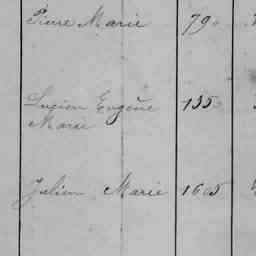 Pierre Marie 79
Lucien Eugène 135
Marie
Julien Marie 1605